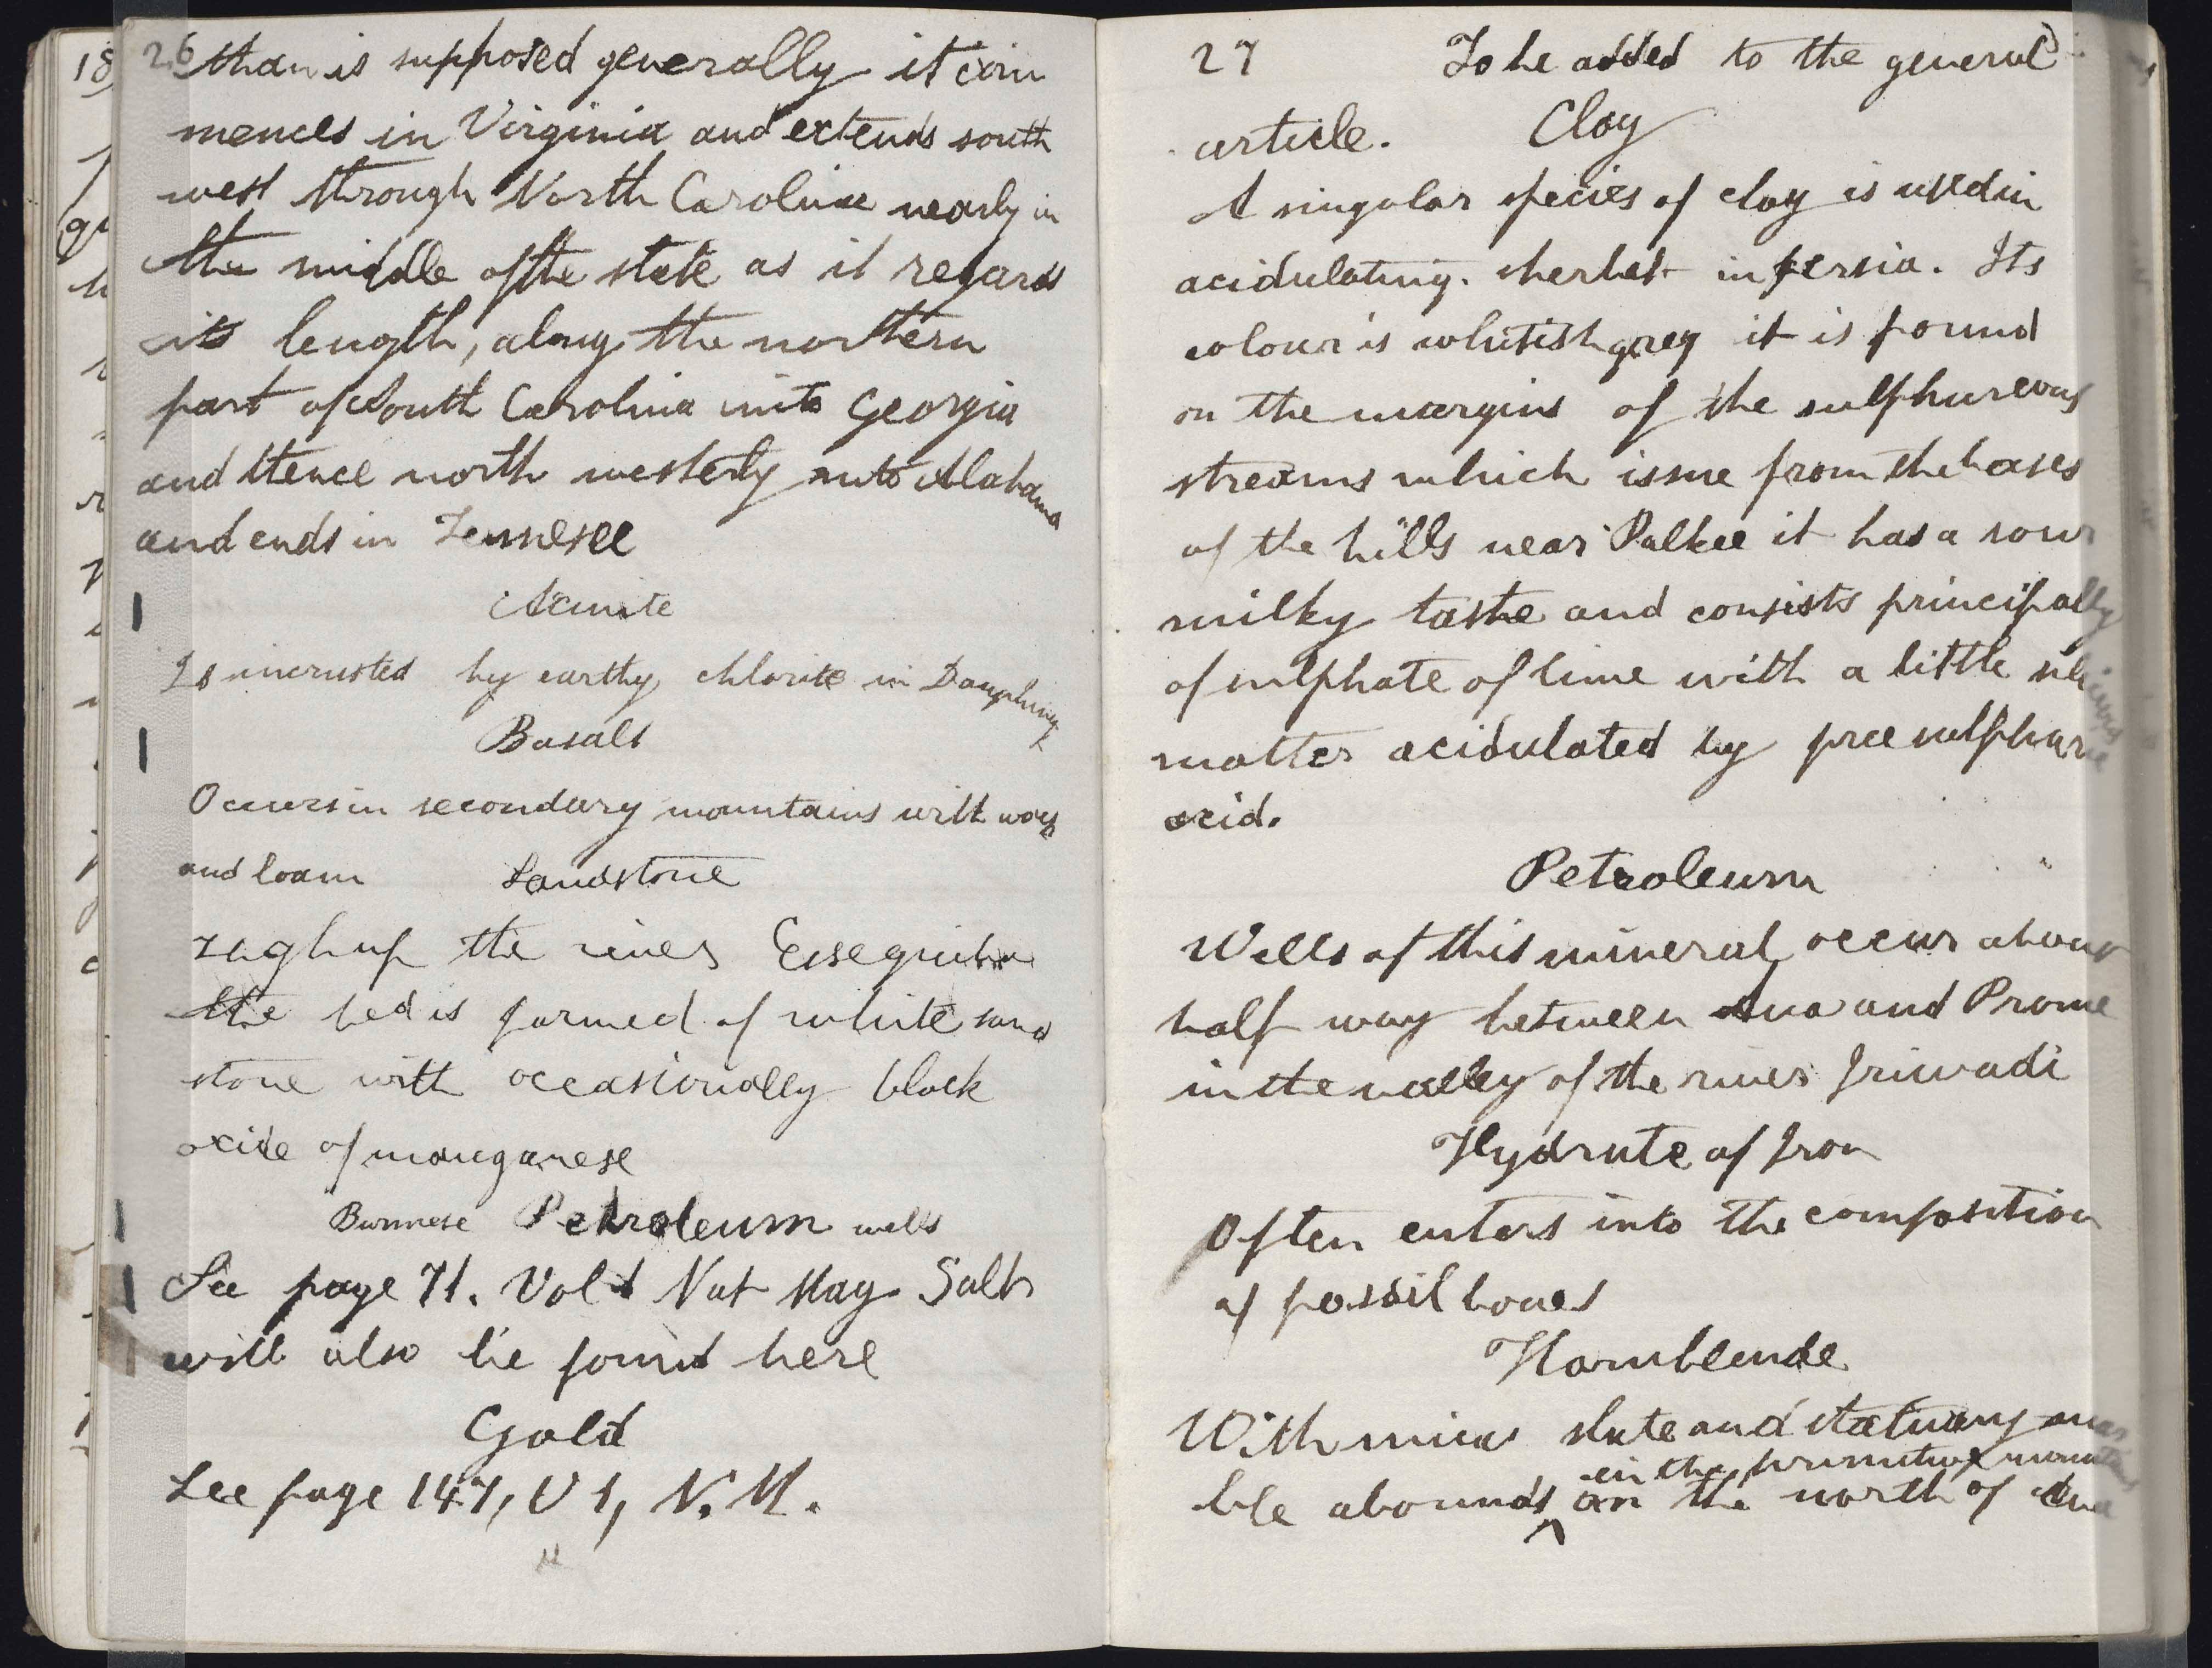 26 than is supposed generally it com
mences in Virginia and extends south
west through North Carolina nearly in
the middle of the state as it regards
its length, along the northern
part of South Carolina into Georgia
and thence north westerly into Alabama
and ends in Tennesee
Axinite
Is incrusted by earthy chlorite in Dauphiny
Basalt
Occurs in secondary mountains with
and loam Sandstone
high up the river Essequibo
the bed is formed of white sand
stone with occasionally black
oxide of manganese
Burmese Petroleum wells
See page 71. Vol 1 Nat Mag. Salt
will also be found here
Gold
See page 147, V 1, N. M.
27 To be added to the general
article. Clay
A singular species of clay is used in
acidulating. sherbet in persia. Its
colour is whitish grey it is found
on the margins of the sulphureous
streams which issue from the bases
of the hills near Dalkee it has a sour
milky taste and consists principally
of sulphate of lime with a little
matter acidulated by free sulphuric
acid.
Petroleum
Wells of this mineral occur about
half way between Ava and Prome
in the valley of the river Iriwadi
Hydrate of Iron
Often enters into the composition
of fossil bones
Hornblende
With mica slate and statuary mar
in the primitive mountains
ble abounds on the north of Ava